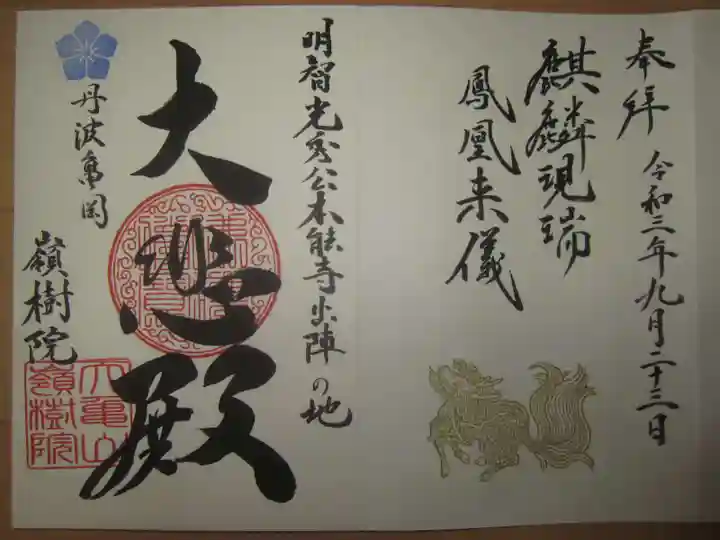 奉拝 令和三年九月二十三日
麒麟現瑞
鳳凰来儀
明智光秀公本能寺出陣の地
大悲殿
丹波亀岡
嶺樹院
大亀山
嶺樹院